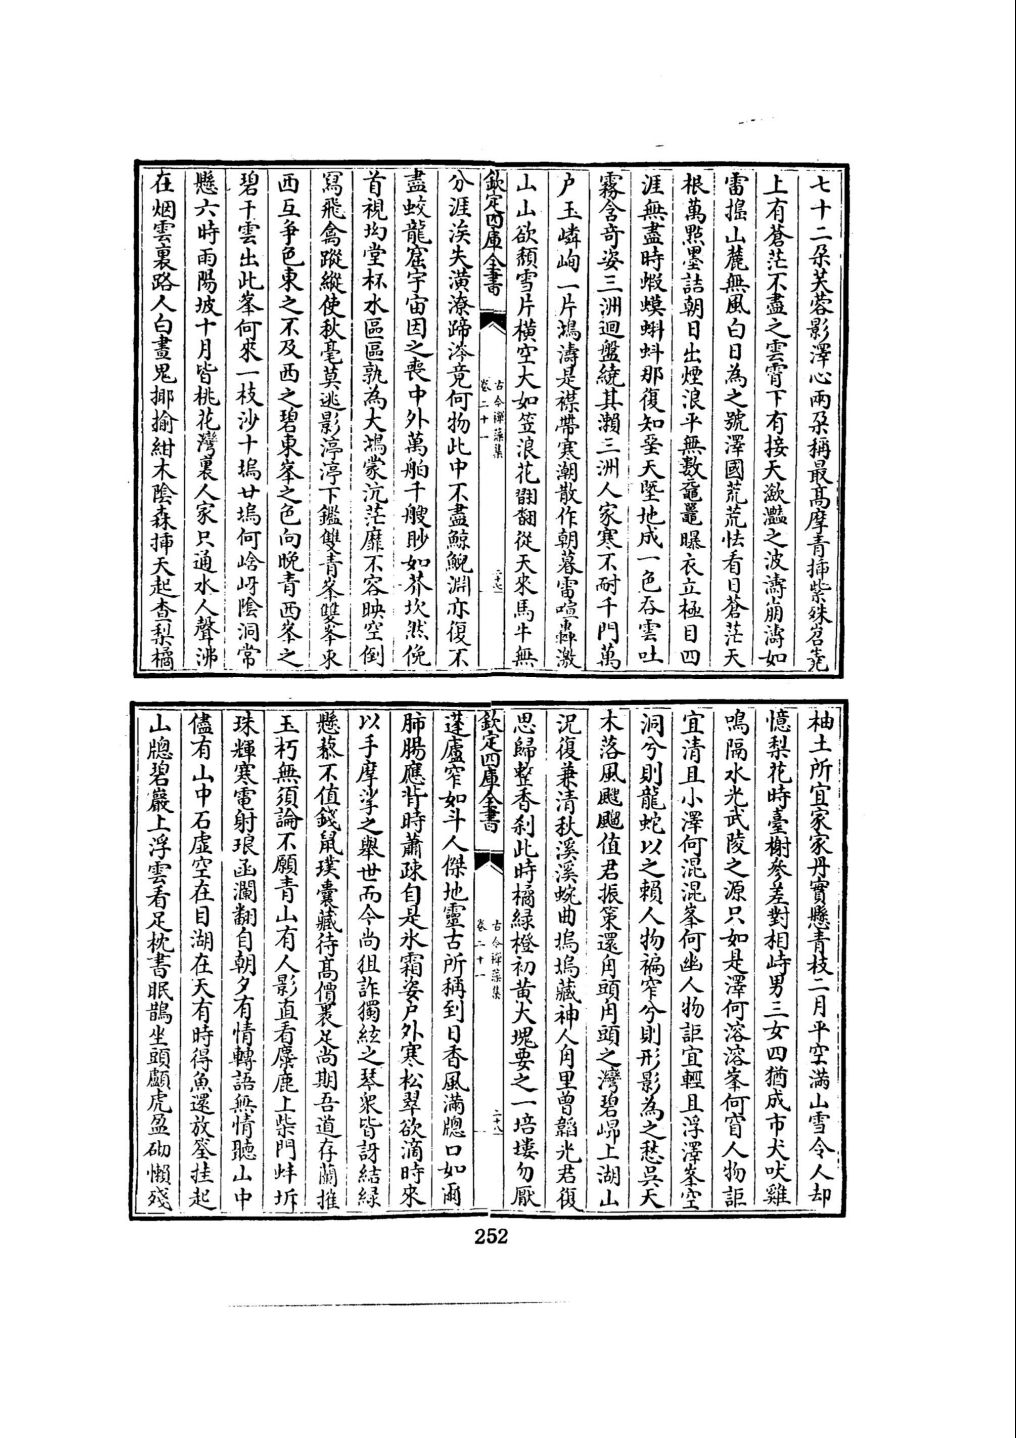 七十二朶芙蓉影澤心兩朶稱最高摩青挿紫殊岧嶤
上有蒼茫不盡之雲霄下有接天瀲灩之波濤崩濤如
雷搖山麓無風白日為之號澤國荒荒怯看日蒼茫天
根萬㸃墨詰朝日出煙浪平無數黿鼉曝衣立極目四
涯無盡時蝦蟆蝌蚪那復知垂天墜地成一色吞雲吐
霧含奇姿三洲迴盤繞其瀬三洲人家寒不耐千門萬
户玉嶙峋一片鴻濤是襟帶寒潮散作朝暮雷喧轟激
山山欲頽雪片橫空大如笠浪花翻翻從天來馬牛無
欽定四庫全書
古今禪藻集
卷二十一
二十七
分涯涘失潢潦蹄涔竟何物此中不盡鯨鯢淵亦復不
盡蛟龍窟宇宙因之喪中外萬舶千艘眇如芥坎然俛
首視坳堂杯水區區孰為大鴻蒙沆茫靡不容映空倒
寫飛禽蹤縱使秋毫莫逃影渟渟下鑑雙青峯雙峯東
西互争色東之不及西之碧東峯之色向晚青西峯之
碧干雲出此峯何求一枝沙十塢廿塢何唅岈陰洞常
懸六時雨陽坡十月皆桃花灣裏人家只通水人聲沸
在烟雲裏路人白晝鬼揶揄紺木陰森挿天起查梨橘
柚土所宜家家丹實懸青枝二月平空滿山雪令人却
憶梨花時臺榭參差對相峙男三女四猶成市犬吠雞
鳴隔水光武陵之源只如是澤何溶溶峯何窅人物詎
宜清且小澤何混混峯何幽人物詎宜輕且浮澤峯空
洞兮則龍蛇以之賴人物褊窄兮則形影為之愁吳天
木落風颼颼值君振策還甪頭甪頭之灣碧㟐上湖山
況復兼清秋溪溪蜿曲塢塢藏神人甪里曽韜光君復
思歸整香刹此時橘緑橙初黄大塊要之一培塿勿厭
欽定四庫全書
古今禪藻集
卷二十一
二十八
蓬廬窄如斗人傑地靈古所稱到日香風滿牕口如爾
肺腸應背時蕭疎自是氷霜姿户外寒松翠欲滴時來
以手摩挲之舉世而今尚狙詐獨絃之琴衆皆訝結緑
懸藜不值錢鼠璞囊藏待髙價裹足尚期吾道存蘭摧
玉朽無須論不願青山有人影直看麋鹿上柴門蚌坼
珠輝寒電射琅函瀾翻自朝夕有情轉語無情聽山中
儘有山中石虚空在目湖在天有時得魚還放筌挂起
山牕碧巖上浮雲看足枕書眠鵲坐頭顱虎盈砌懶殘
252